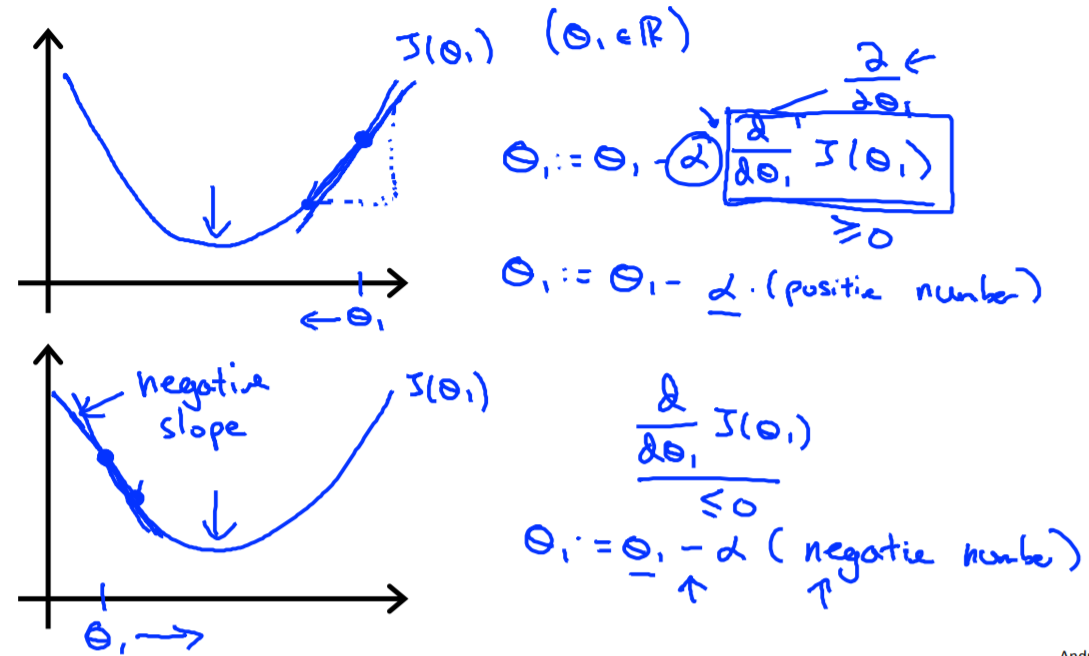 J(θ₁) (θ₁ ∈ ℝ)
∂/∂θ₁ ←
θ₁ := θ₁ - α d/dθ₁ J(θ₁)
≥ 0
θ₁ := θ₁ - α · (positie number)
← θ₁
negative
slope
J(θ₁)
d/dθ₁ J(θ₁)
≤ 0
θ₁ := θ₁ - α (negatie number)
θ₁ →
And